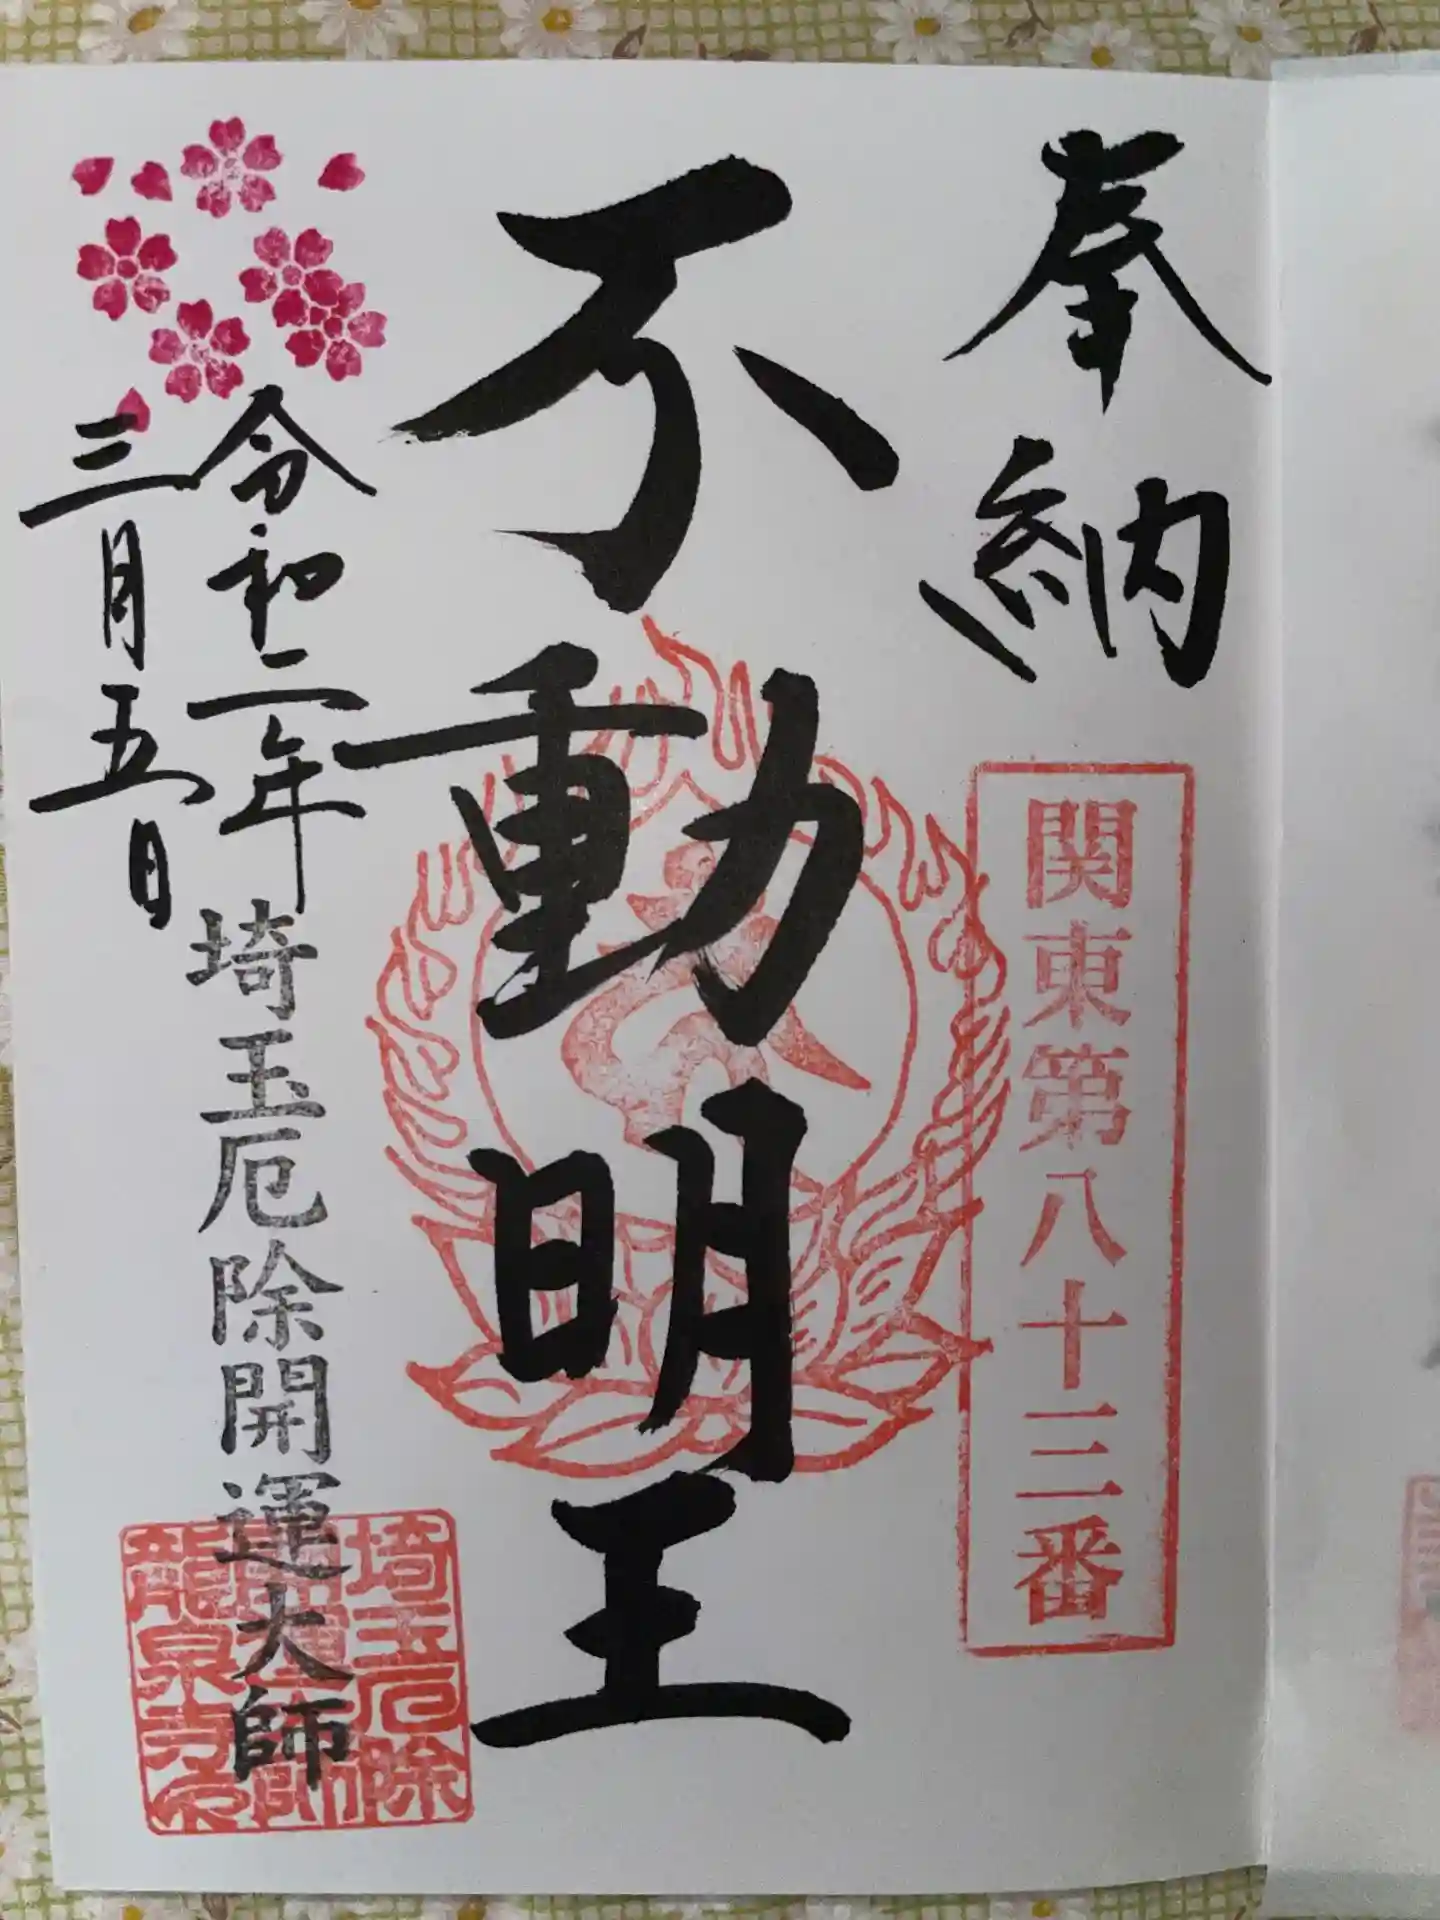 奉納
関東第八十三番
不動明王
令和二年
三月五日
埼玉厄除開運大師
埼玉厄除
開運大師
龍泉寺印